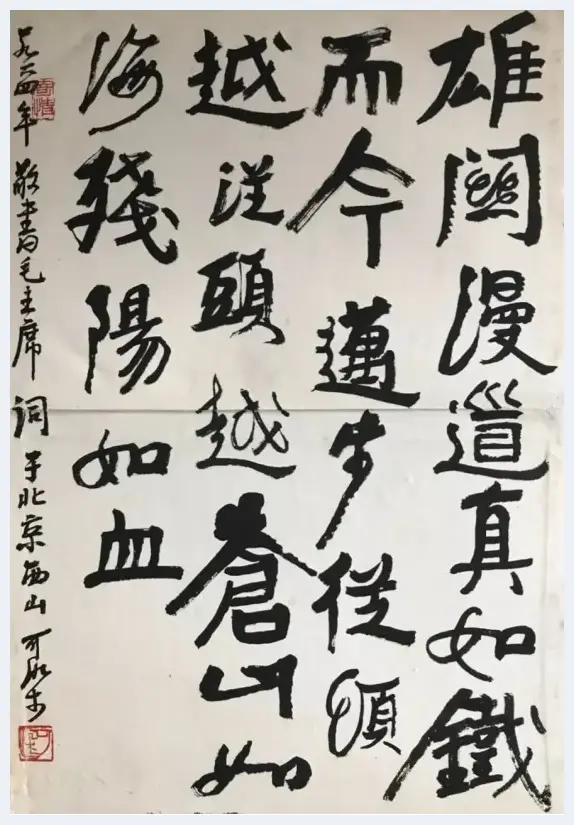 雄關漫道真如鐵
而今邁步從頭
越從頭越蒼山如
海殘陽如血
四年敬書毛主席詞于北京西山可